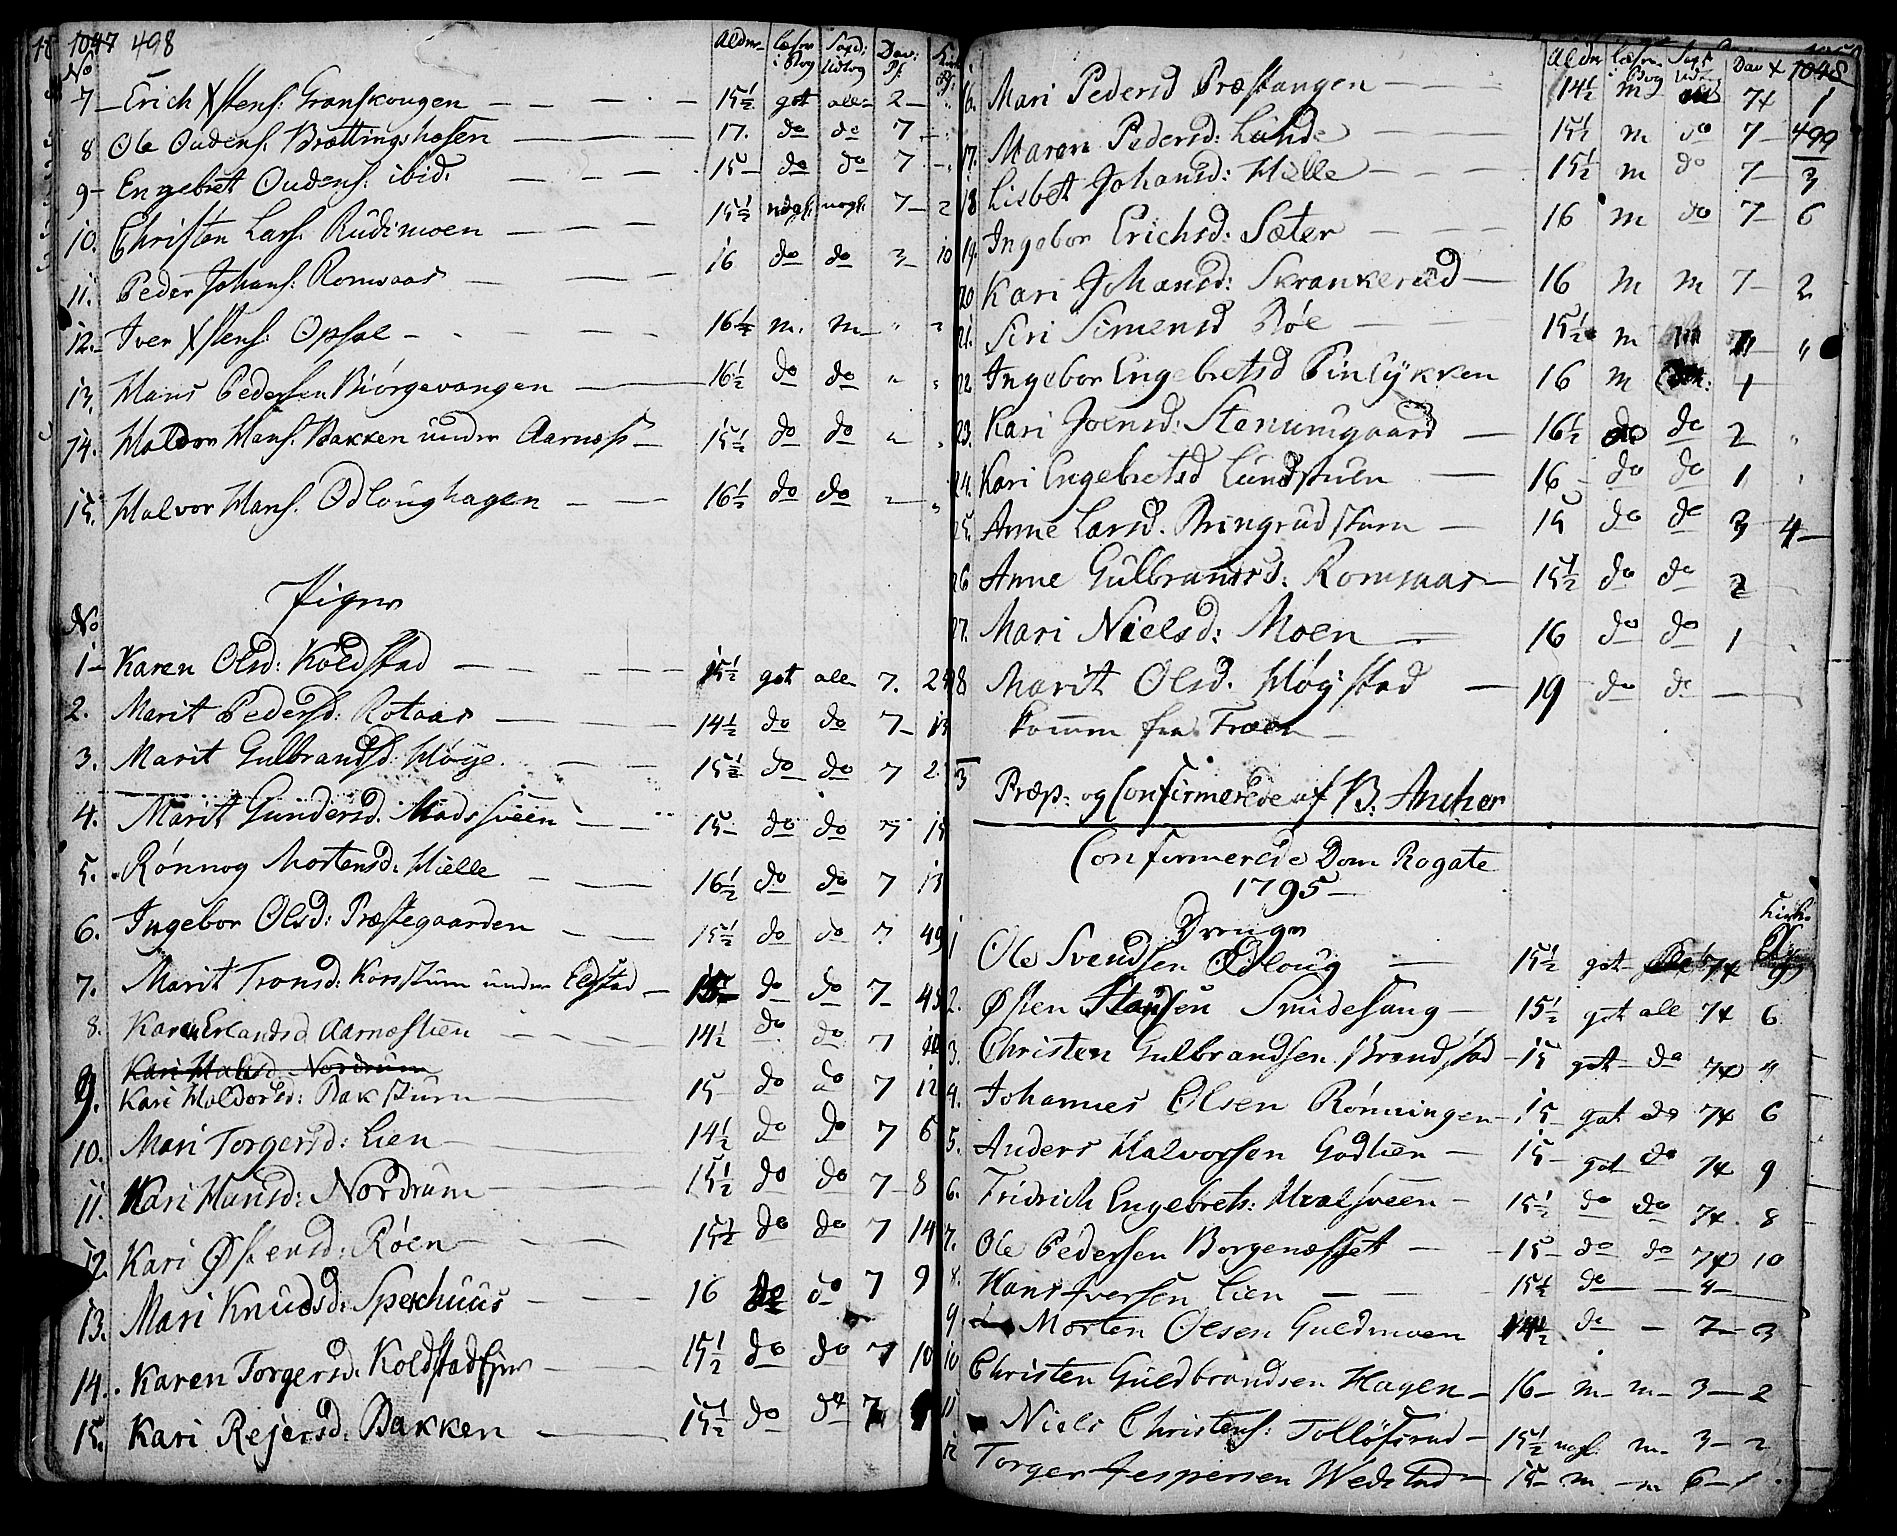 1047 498
No Alder læser i Bog Saxd: Udtog Dav: Ps:
7 Erich Xstens: Granskougen 15½ got alle 2
8 Ole Oudens: Brættingshosen 17. do do 7
9 Engebret Oudens: ibid. 15 do do 7
10. Christen Lars: Rudimoen 15½ nogl: nogl: 7 2
11. Peder Johans: Romsaas 16 do do 3 10
12. Iver Xstens: Opsal 16½ m. m " "
13. Hans Pedersen Biörgevangen 16½ do do " "
14. Haldor Hans: Bakken under Aarnæss 15½ do do " "
15. Halvor Hans: Odloughagen 16½ do do " "
Piger
No
1 Karen Olsd: Koldstad 15½ got alle 7. 29
2. Marit Pedersd: Rotaas 14½ do do 7 13
3. Marit Gulbrandsd: Høye 15½ do do 7 2
4. Marit Gundersd: Madssveen 15 do do 7 15
5. Rönnog Mortensd: Hielle 16½ do do 7 13
6. Ingebor Olsd: Præstegaarden 15½ do do 7 49
7. Marit Tronsd: Konstum under Elstad 15 do do 7 45
8. Karen Erlandsd Aarnæstien 14½ do do 7
Kari Hansd Nordrum
9. Kari Haldorsd: Bakstuen 15 do do 7 12
10. Mari Torgersd: Lien 14½ do do 7 6
11. Kari Hansd: Nordrum 15½ do do 7 8
12. Kari Østensd: Röen 15½ do do 7 14
13. Mari Knudsd: Spekhuus 16 do do 7 9
14. Karen Torgersd: Koldstad 15½ do do 7 10
15. Kari Rejersd: Bakken 15½ do do 7
Alder læser i Bog Saxd: Udtog Dav X 1048
16. Mari Pedersd Præstangen 14½ m 7X 1
499
17. Maren Pedersd: Lunde 15½ m do 7
18 Lisbet Johansd: Hielle 15½ m do 7 3
19. Ingebor Erichsd: Sæter 16 m do 7 6
20 Kari Johansd: Skrankerud 16 m m 7 2
21. Siri Simensd Röe 15½ m m "
22 Ingebor Engebretsd Pinlykken 16 m 1
23. Kari Joensd: Stenumgaard 16½ do do 2 "
24. Kari Engebretsd Lundstuen 16 do do 1
25. Anne Larsd: Bringrudstuen 15 do do 3 4
26 Anne Gulbrandsd: Romsaas 15½ do do 2
27. Mari Nielsd: Moen 16 do do 1
28 Marit Olsd: Høystad 19 do do
kommen fra Froen
Præp: og Confirmerede af B: Ancher
Confirmerede Dom Rogate
1795
Drenge
1 Ole Svendsen Odloug 15½ got 7X
2. Østen Stensen Smidesang 15½ got alle 7X 6
3. Christen Gulbrandsen Brandstad 15 got do 7X "
4. Johannes Olsen Rönningen 15 got do 7X 6
5. Anders Halvorsen Godlien 15 got do 7X 9
6. Fridrich Engebrets: Hvalsveen 15½ do do 7X 8
7. Ole Pedersen Borgenæsset 15 do do 7X 10
8. Hans Iversen Lien 15½ do 4
9 Morten Olsen Guldmoen 14½ do 7 3
10 Christen Guldbrandsen Hagen 16 m m 3 2
11 Niels Christens: Tollöfsrud 15½ nogl: m 3 2
12 Torger Jespersen Wedstad 15 m m 6 1